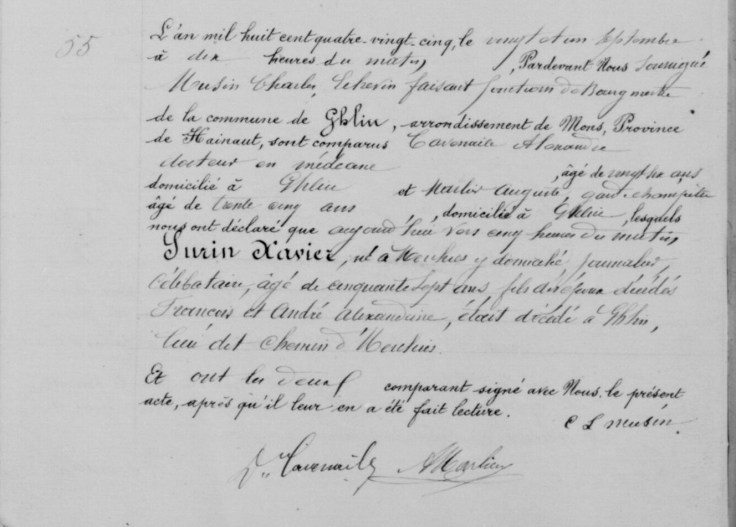 55
L'an mil huit cent quatre-vingt-cinq, le vingt et un Septembre
à dix heures du matin, Pardevant Nous soussigné
Musin Charles, Echevin faisant fonctions de Bourgmestre
de la commune de Ghlin, arrondissement de Mons, Province
de Hainaut, sont comparus Cavenaile Alexandre
docteur en médecine, âgé de vingt six ans
domicilié à Ghlin et Marlier Auguste, garde champêtre
âgé de trente cinq ans domicilié à Ghlin, lesquels
nous ont déclaré que aujourd'hui vers cinq heures du matin,
Surin Xavier, né à Herchies y domicilié, journalier,
célibataire, âgé de cinquante sept ans fils de feux décédés
François et André Alexandrine, était décédé à Ghlin,
lieu dit Chemin d'Herchies.
Et ont les deux comparant signé avec Nous le présent
acte, après qu'il leur en a été fait lecture.
C L Musin.
Dr Cavenaile AMarlier